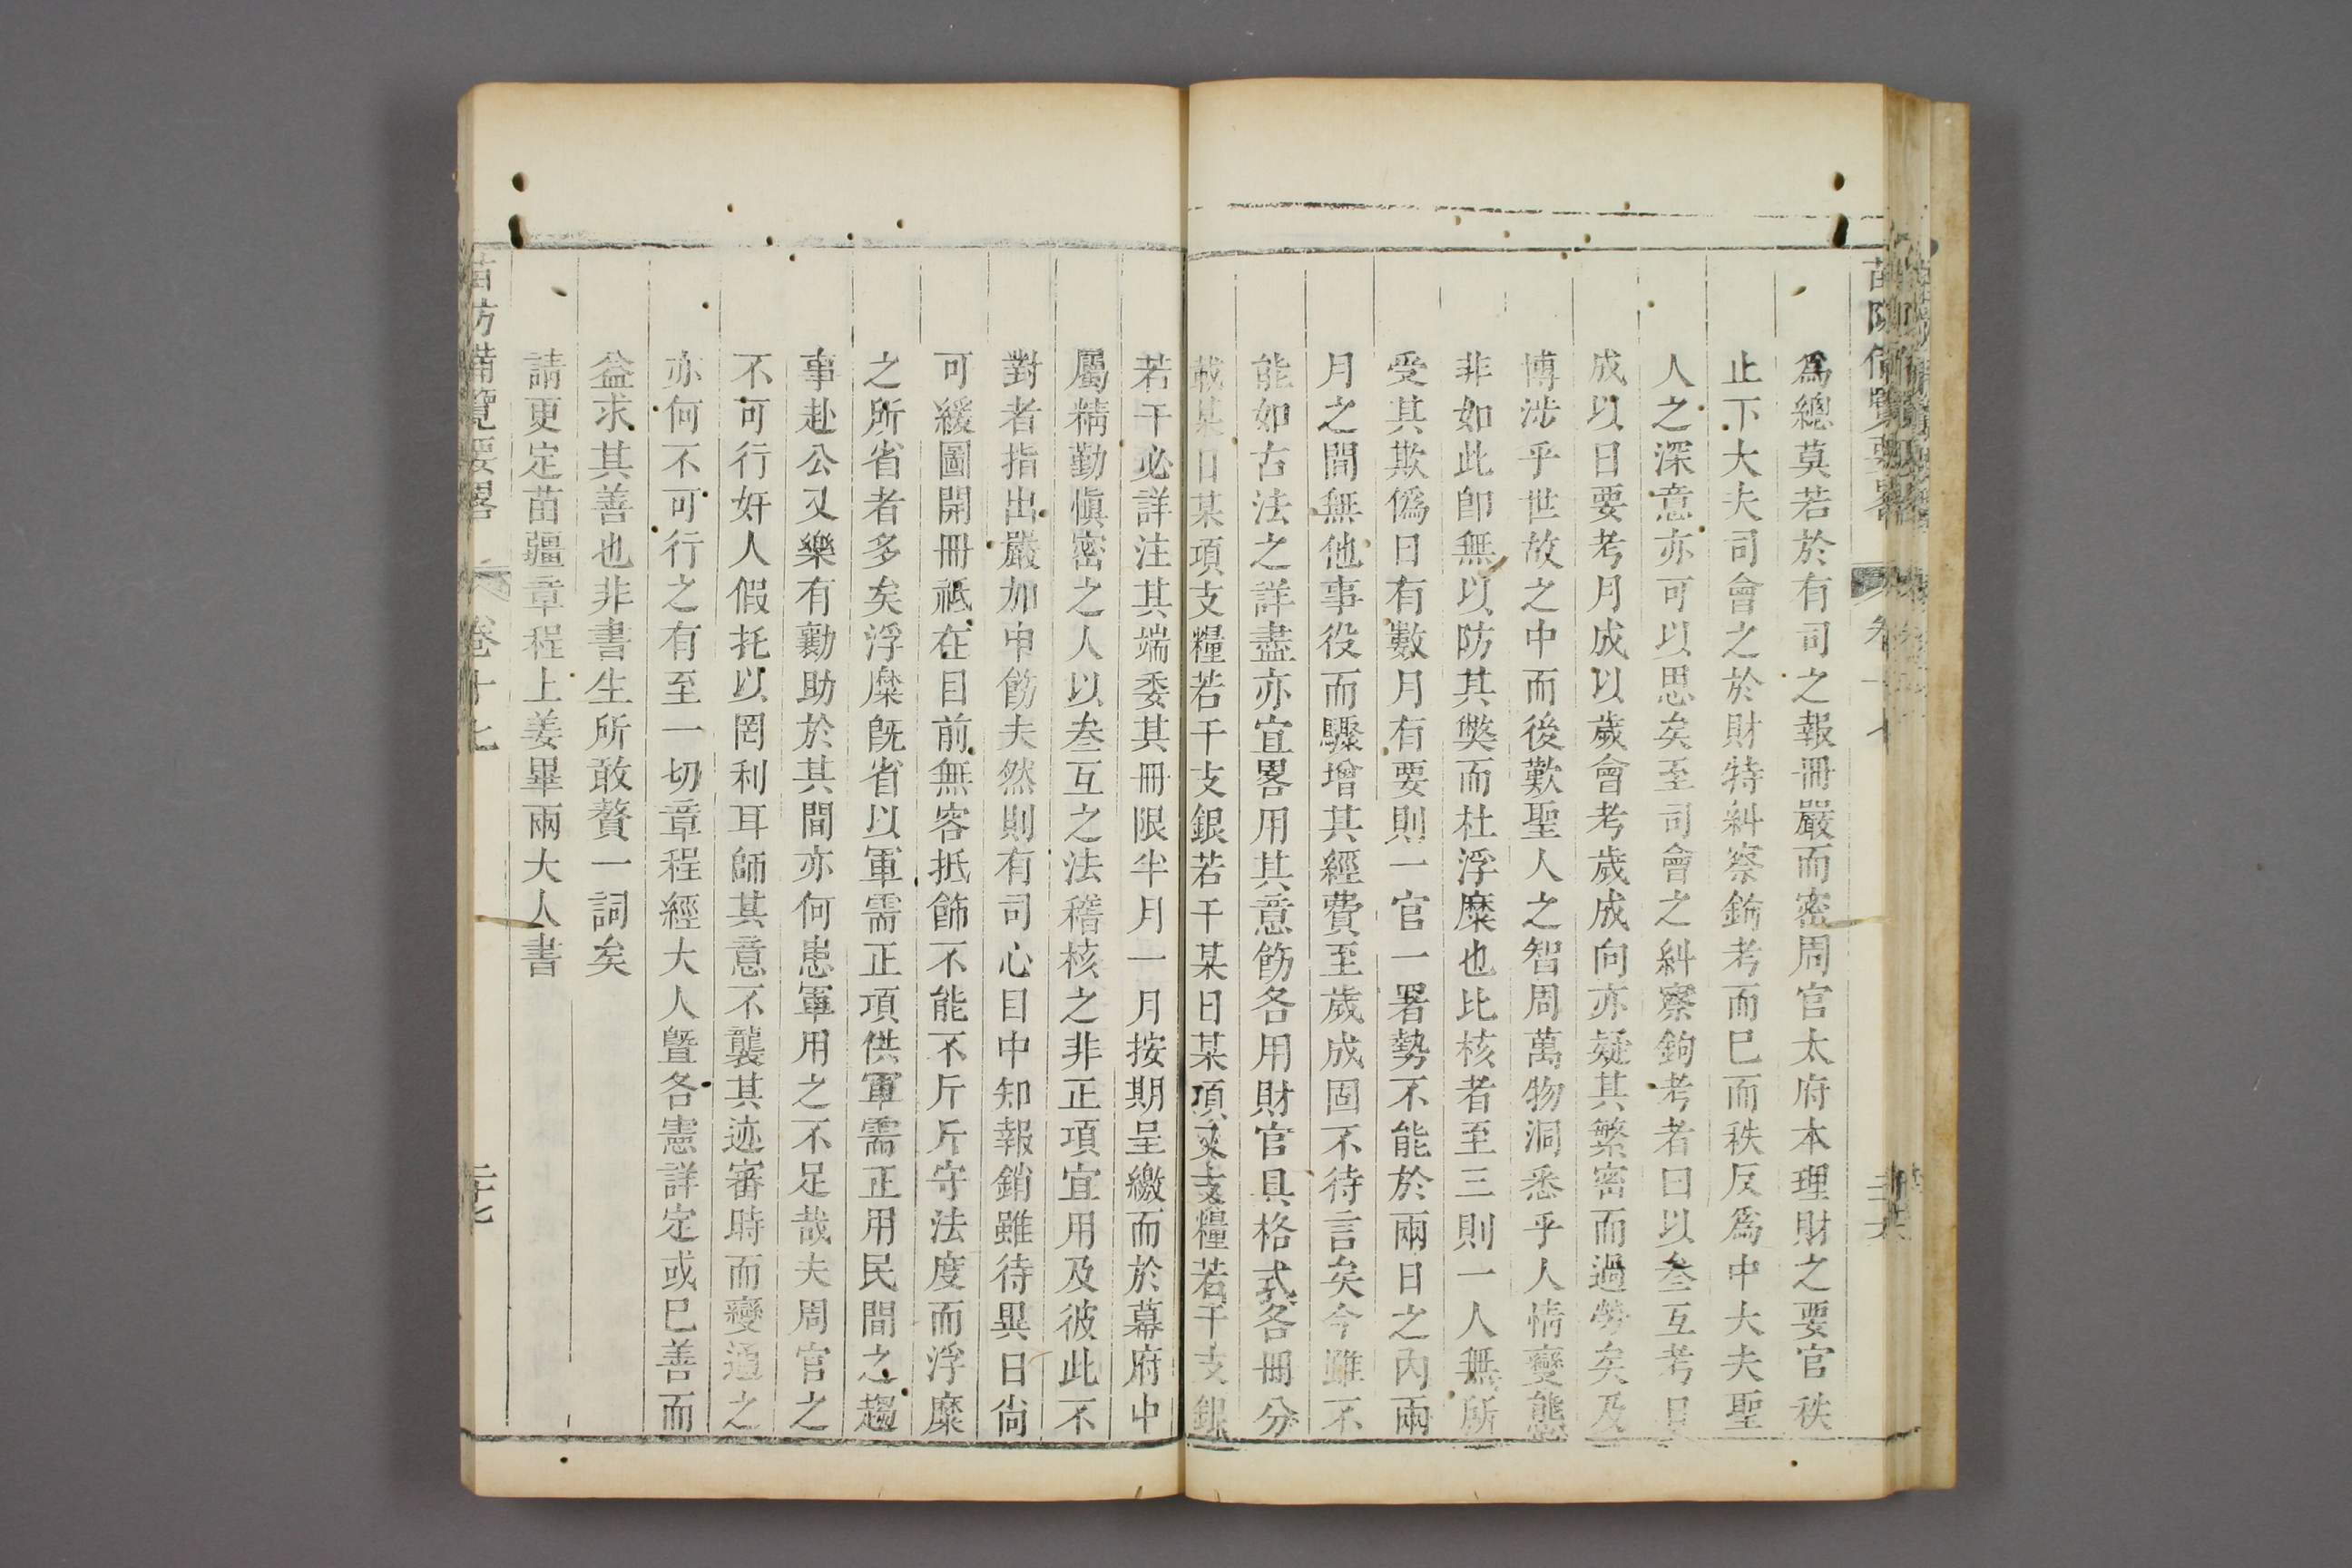 爲總莫若於有司之報冊嚴而密周官太府本理財之要官秩
止下大夫司會之於財特糾察鉤考而巳而秩反爲中大夫聖
人之深意亦可以思矣至司會之糾察鉤考者曰以叁互考日
成以日要考月成以歲會考歲成向亦疑其繁密而過勞矣及
博涉乎世故之中而後歎聖人之智周萬物洞悉乎人情變態
非如此卽無以防其獘而杜浮糜也比核者至三則一人無所
受其欺僞日有數月有要則一官一署勢不能於兩日之內兩
月之間無他事役而驟增其經費至歲成固不待言矣今雖不
能如古法之詳盡亦宜畧用其意飭各用財官具格式各冊分
載某日某項支糧若干支銀若干某日某項又支糧若干支銀
若干必詳注其端委其冊限半月一月按期呈繳而於幕府中
屬精勤愼密之人以叁互之法稽核之非正項宜用及彼此不
對者指出嚴加申飭夫然則有司心目中知報銷雖待異日尙
可緩圖開冊祗在目前無容抵飾不能不斤斤守法度而浮糜
之所省者多矣浮糜旣省以軍需正項供軍需正用民間之趨
事赴公又樂有勸助於其間亦何患軍用之不足哉夫周官之
不可行奸人假托以罔利耳師其意不襲其迹審時而變通之
亦何不可行之有至一切章程經大人曁各憲詳定或巳善而
益求其善也非書生所敢贅一詞矣
請更定苗疆章程上姜畢兩大人書
苗防備覽要畧 卷十七 二十七